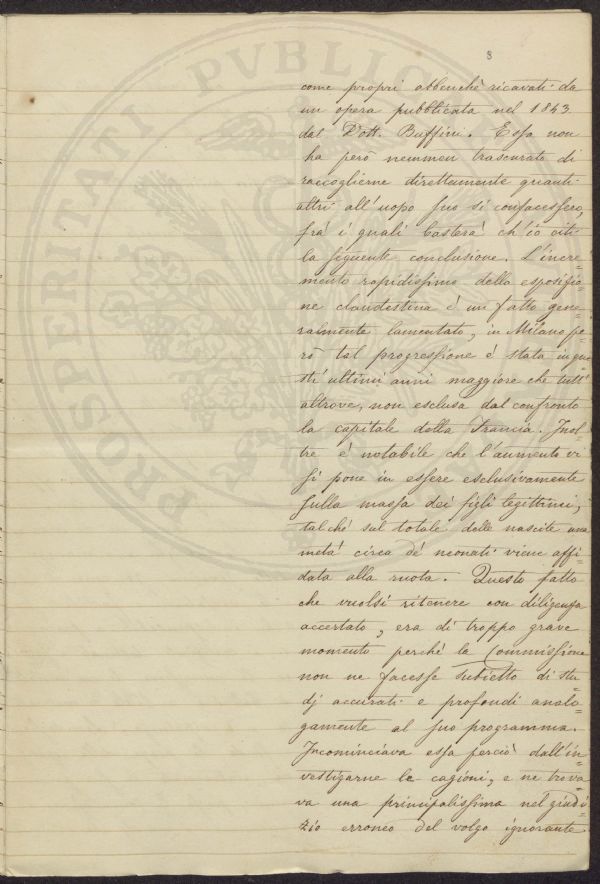 8
come propri abbenchè ricavati da
un opera pubblicata nel 1843
dal Dott. Buffini. Essa non
ha però nemmen trascurato di
raccoglierne direttamente quanti
altri all'uopo suo si confacessero,
frà i quali basterà ch'io citi
la seguente conclusione. L'incre=
mento rapidissimo della esposizio=
ne clandestina è un fatto gene=
ralmente lamentato, in Milano pe=
rò tal progressione è stata in que=
sti ultimi anni maggiore che tutt'
altrove, non esclusa dal confronto
la capitale della Francia. Inol=
tre è notabile che l'aumento vi
si pone in essere esclusivamente
sulla massa dei figli legittimi,
talchè sul totale delle nascite una
metà circa de' neonati viene affi=
data alla ruota. Questo fatto
che vuolsi ritenere con diligenza
accertato, era di troppo grave
momento perchè la Commissione
non ne facesse subietto di stu=
dj accurati e profondi analo=
gamente al suo programma.
Incominciava essa perciò dall'in=
vestigarne le cagioni, e ne trova=
va una principalissima nel giudi=
zio erroneo del volgo ignorante
PROSPERITATI PVBLICAE